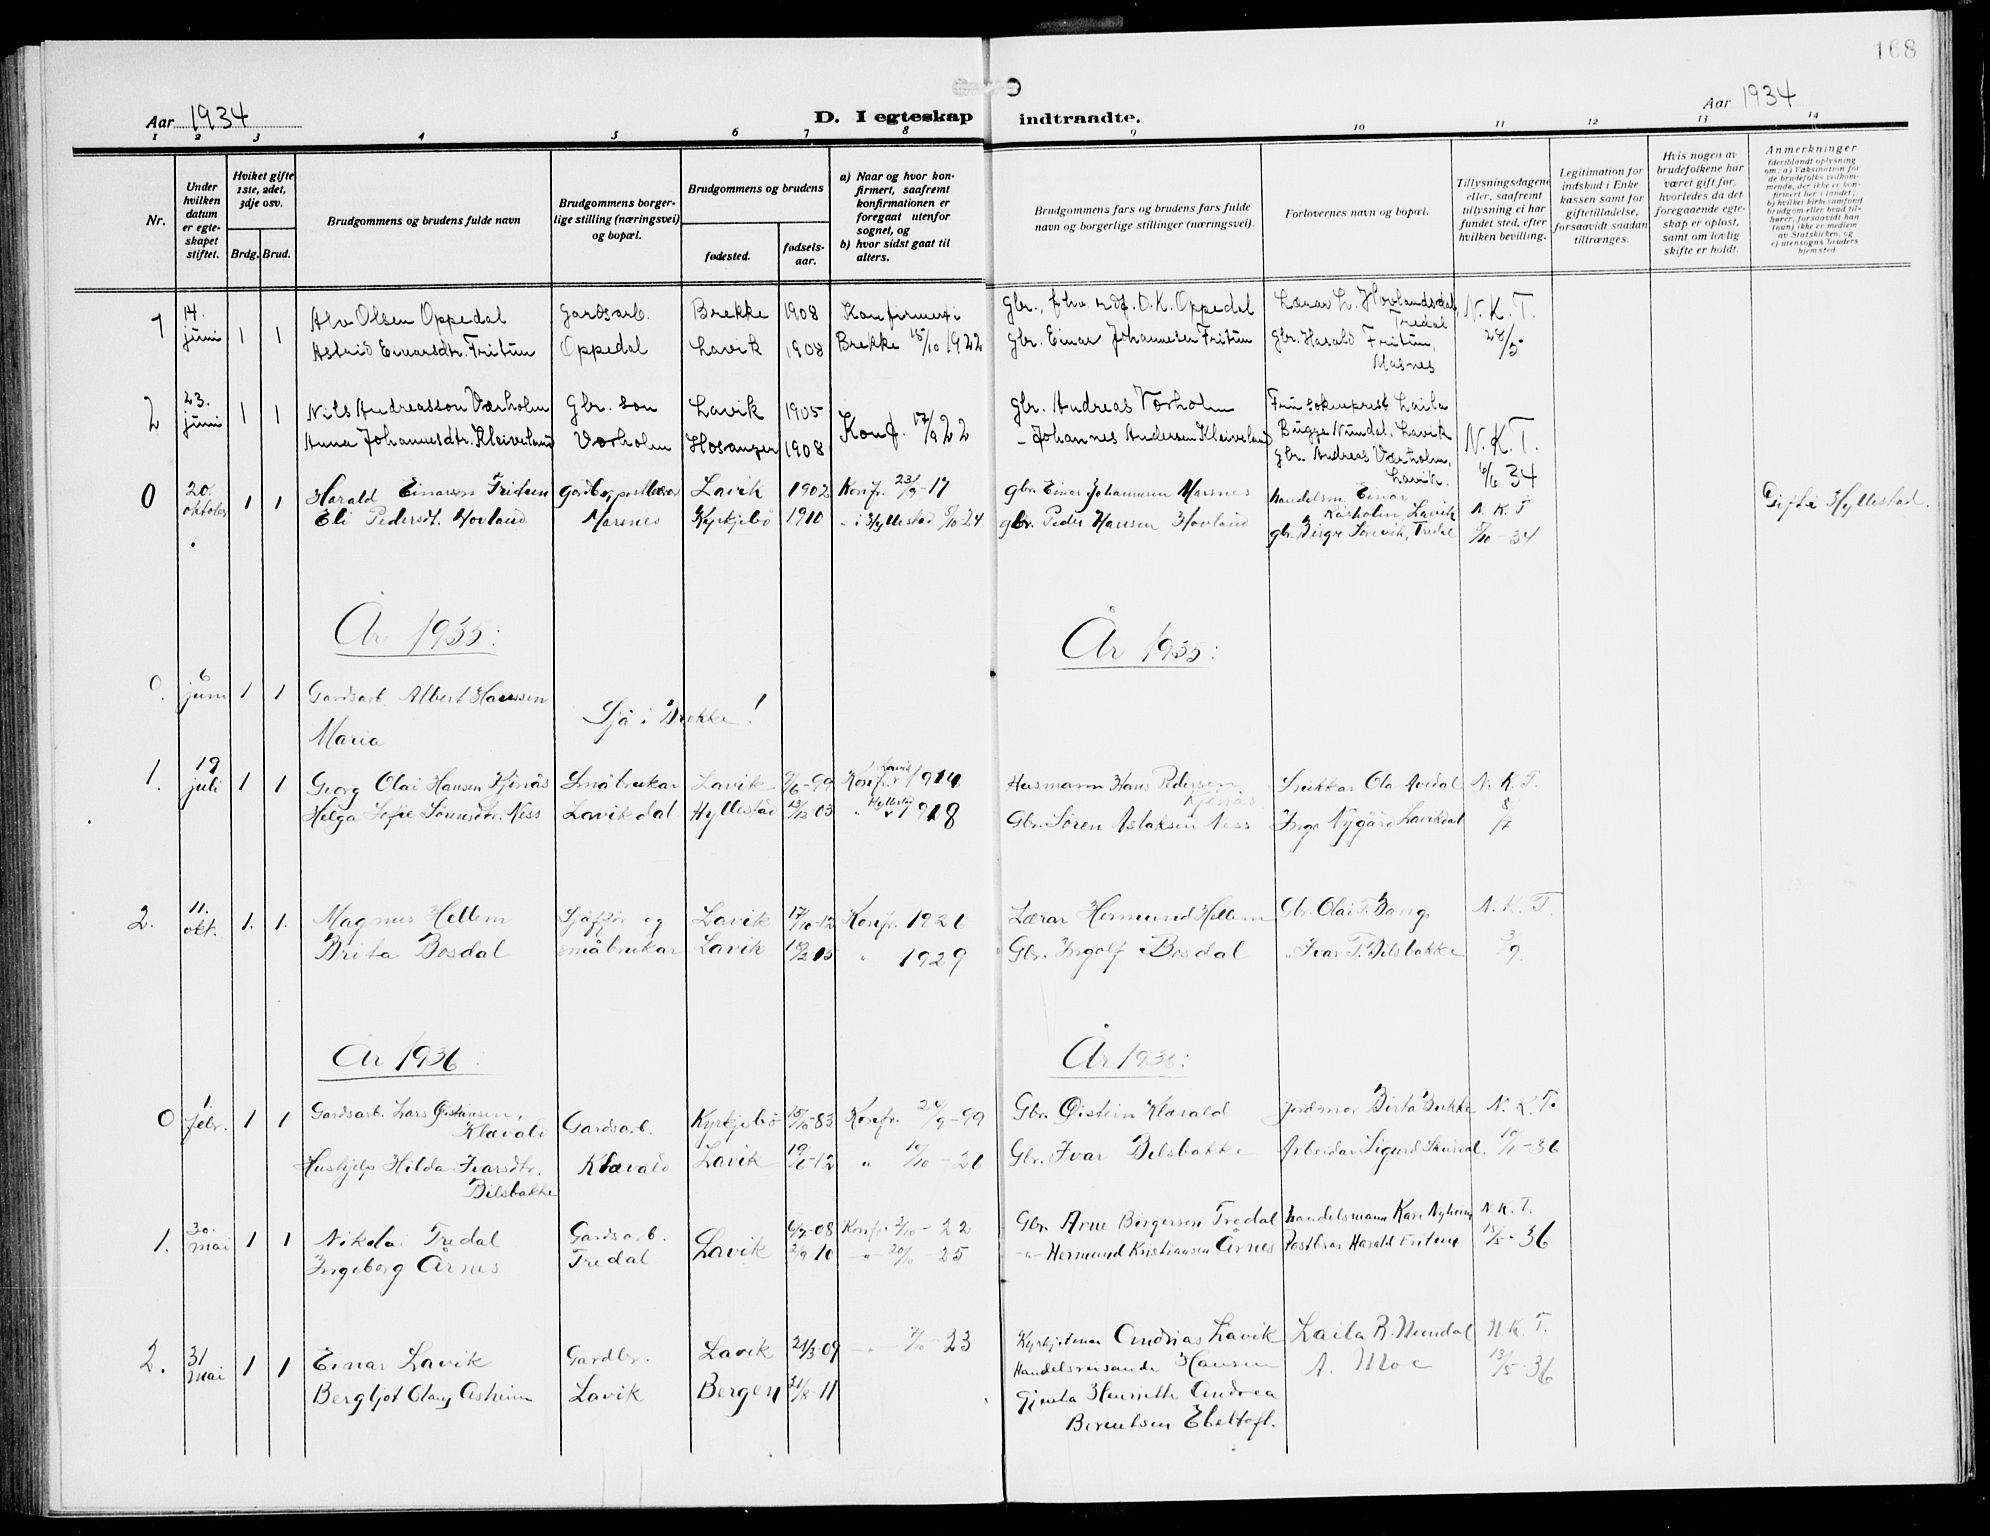 168
Aar 1934
D. I egteskap indtraadte.
Aar 1934
1 2 3 4 5 6 7 8 9 10 11 12 13 14
Nr.
Under hvilken datum er egteskapet stiftet.
Hvilket gifte 1ste, 2det, 3dje osv.
Brdg. Brud.
Brudgommens og brudens fulde navn
Brudgommens borgerlige stilling (næringsvei) og bopæl.
Brudgommens og brudens
fødested.
fødselsaar.
a) Naar og hvor konfirmert, saafremt konfirmationen er foregaat utenfor sognet, og
b) hvor sidst gaat til alters.
Brudgommens fars og brudens fars fulde navn og borgerlige stillinger (næringsvei).
Forlovernes navn og bopæl.
Tillysningsdagene eller, saafremt tillysning ei har fundet sted, efter hvilken bevilling.
Legitimation for indskud i Enkekassen samt for giftetilladelse, forsaavidt saadan tiltrænges.
Hvis nogen av brudefolkene har været gift før, hvorledes da det foregaaende egteskap er opløst, samt om lovlig skifte er holdt.
Anmerkninger
(deriblandt oplysning om: a) Vaksination for de brudefolks vedkommende, der ikke er konfirmert her i landet; b) hvilket kirkesamfund brudgom eller brud tilhører, forsaavidt han (hun) ikke er medlem av Statskirken, og c) utensogns bruders hjemsted
1 14. juni 1 1 Alv Olsen Oppedal Gardsarb. Brekke 1908 Konfirmert i Gbr., fhv. rdf. O. K. Oppedal Lærar L. Hovlandsdal, Tredal N. K. T.
Astrid Einarsdtr. Fritun Oppedal Lavik 1908 Brekke 15/10 1922 gbr. Einar Johannesen Fritun gbr. Harald Fritun, Masnes 28/5
2 23. juni 1 1 Nils Andreasson Værholm Gbr. son Lavik 1905 Konf. 17/9 22 gbr. Andreas Værholm Fru sokneprest Laila Bugge Nundal, Lavik N. K. T.
Anna Johannesdtr. Kleiveland Værholm Hosanger 1908 - Johannes Andersen Kleiveland gbr. Andreas Værholm, Lavik. 6/6 34
0 20. oktober 1 1 Harald Einarson Fritun Lavik 1902 Konfr. 23/9-17 gbr. Einar Johannesen Masnes handelsm. Einar Lavik N. K. T
Eli Pedersdt. Hovland Masnes Kyrkjebø 1910 - i Hyllestad 5/10 24 gbr. Peder Hansen Hovland gbr. Birger Tredal 5/10-34
Gifte i Hyllestad.
År 1935: År 1935:
0. 6 juni 1 1 Gardsarb. Albert Hanssen
Maria
Sjå i Brekke!
1. 19 juli 1 1 Georg Olai Hansen Småbrukar Lavik 9/6-99 Konfr. i Lavik 1914 Husmann Hans Pedersen Snikkar Ola Avedal N. K. T.
Helga Sofie Sørensdtr. Ness Lavikdal Hyllestad 13/12 03 " Hyllestad 1918 Gbr. Søren Aslaksen Ness Inga Nygård Lavikdal 8/7
2. 11. okt. 1. 1. Magnus Hellem Sjåfør og Lavik 17/10-12 Konfr. 1926 Lærar Hermund Hellem Gbr. Olai T. Bang N. K. T.
Brita Bosdal småbrukar Lavik 15 " 1929 Gbr. Ingolf Bosdal " Ivar T. Bilsbakke 3/9.
År 1936: År 1936:
0 1 febr. 1 1 Gardsarb. Lars Øistinsen, Klævold Gardsarb. Kyrkjebø 15/10-83 Konfr. 24/9-99 Gbr. Øistein Klævold Jordmor Birta Bukke N. K. T.
Hushjelp Hilda Ivarsdtr. Bilsbakke Klævold Lavik 19/6-12 " 10/10-26 Gbr. Ivar Bilsbakke Arbeidar Sigurd 10/1-36
1. 30. mai 1 1 Nikolai Tredal Gardsarb. Lavik 6/7-08 Konfr. 7/10-22 Gbr. Arne Birgerson Tredal handelsmann Kåre Nyheim N. K. T.
Ingeborg Årnes Tredal 2/9 10 -"- 20/10-25 -"- Hermund Kristiansen Årnes Postbrar Harald Fritun 15/5-36
2. 31 mai 1 1 Einar Lavik Gardbr. Lavik 24/3-09 -"- 7/10-23 Kyrkjetenar Andrias Lavik Laila B. Nundal N. K. T.
Bergljot Olaug Asheim Lavik Bergen 31/8-11 Handelsreisande Hansen A. Moe 13/5-36
Henriette Andrea
Berentsen Ebeltoft.